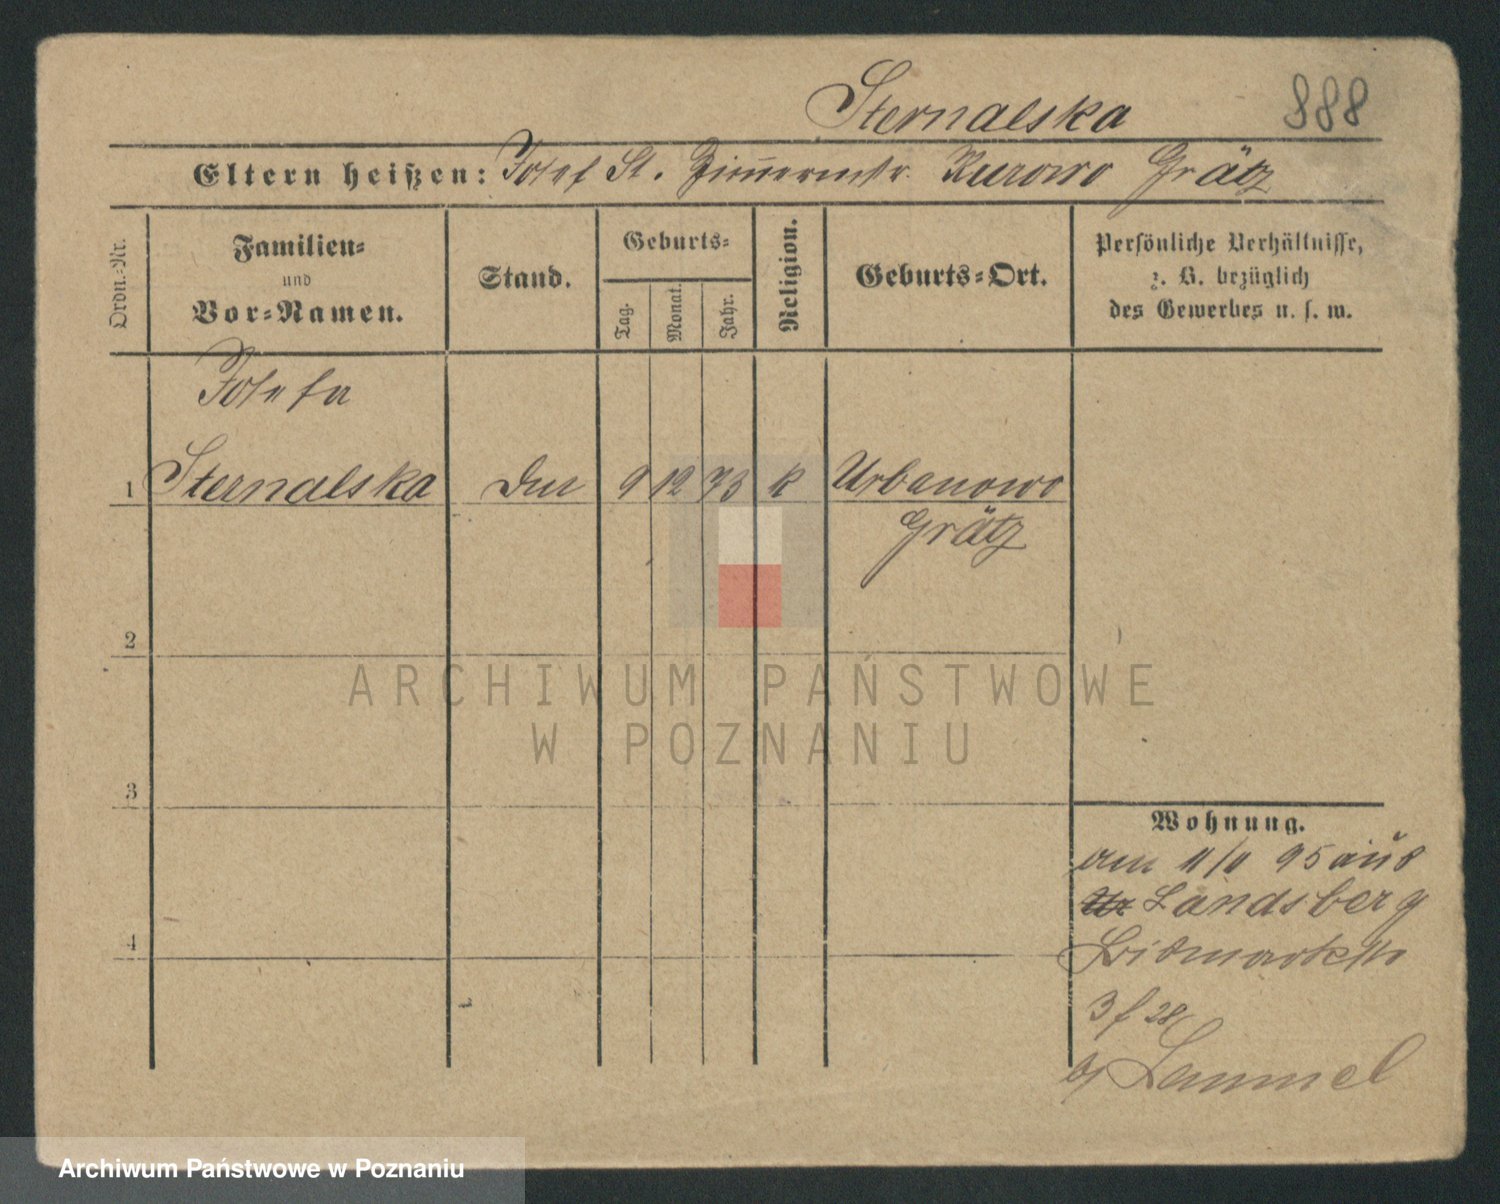 Sternalska 888
Eltern heißen: Josef St. Zimmermstr. Kurowo Grätz
Ordn.-Nr.
Familien-
und
Vor-Namen.
Stand.
Geburts-
Tag.
Monat.
Jahr.
Religion.
Geburts-Ort.
Persönliche Verhältnisse,
z. B. bezüglich
des Gewerbes u. s. w.
Josefa
1 Sternalska 9 12 73 k Urbanowo
Grätz
2
3
4
Wohnung.
am 11/1 95 aus
Landsberg
Bismarckstr
3 f 28
b/ Lemmel
ARCHIWUM PAŃSTWOWE
W POZNANIU
Archiwum Państwowe w Poznaniu